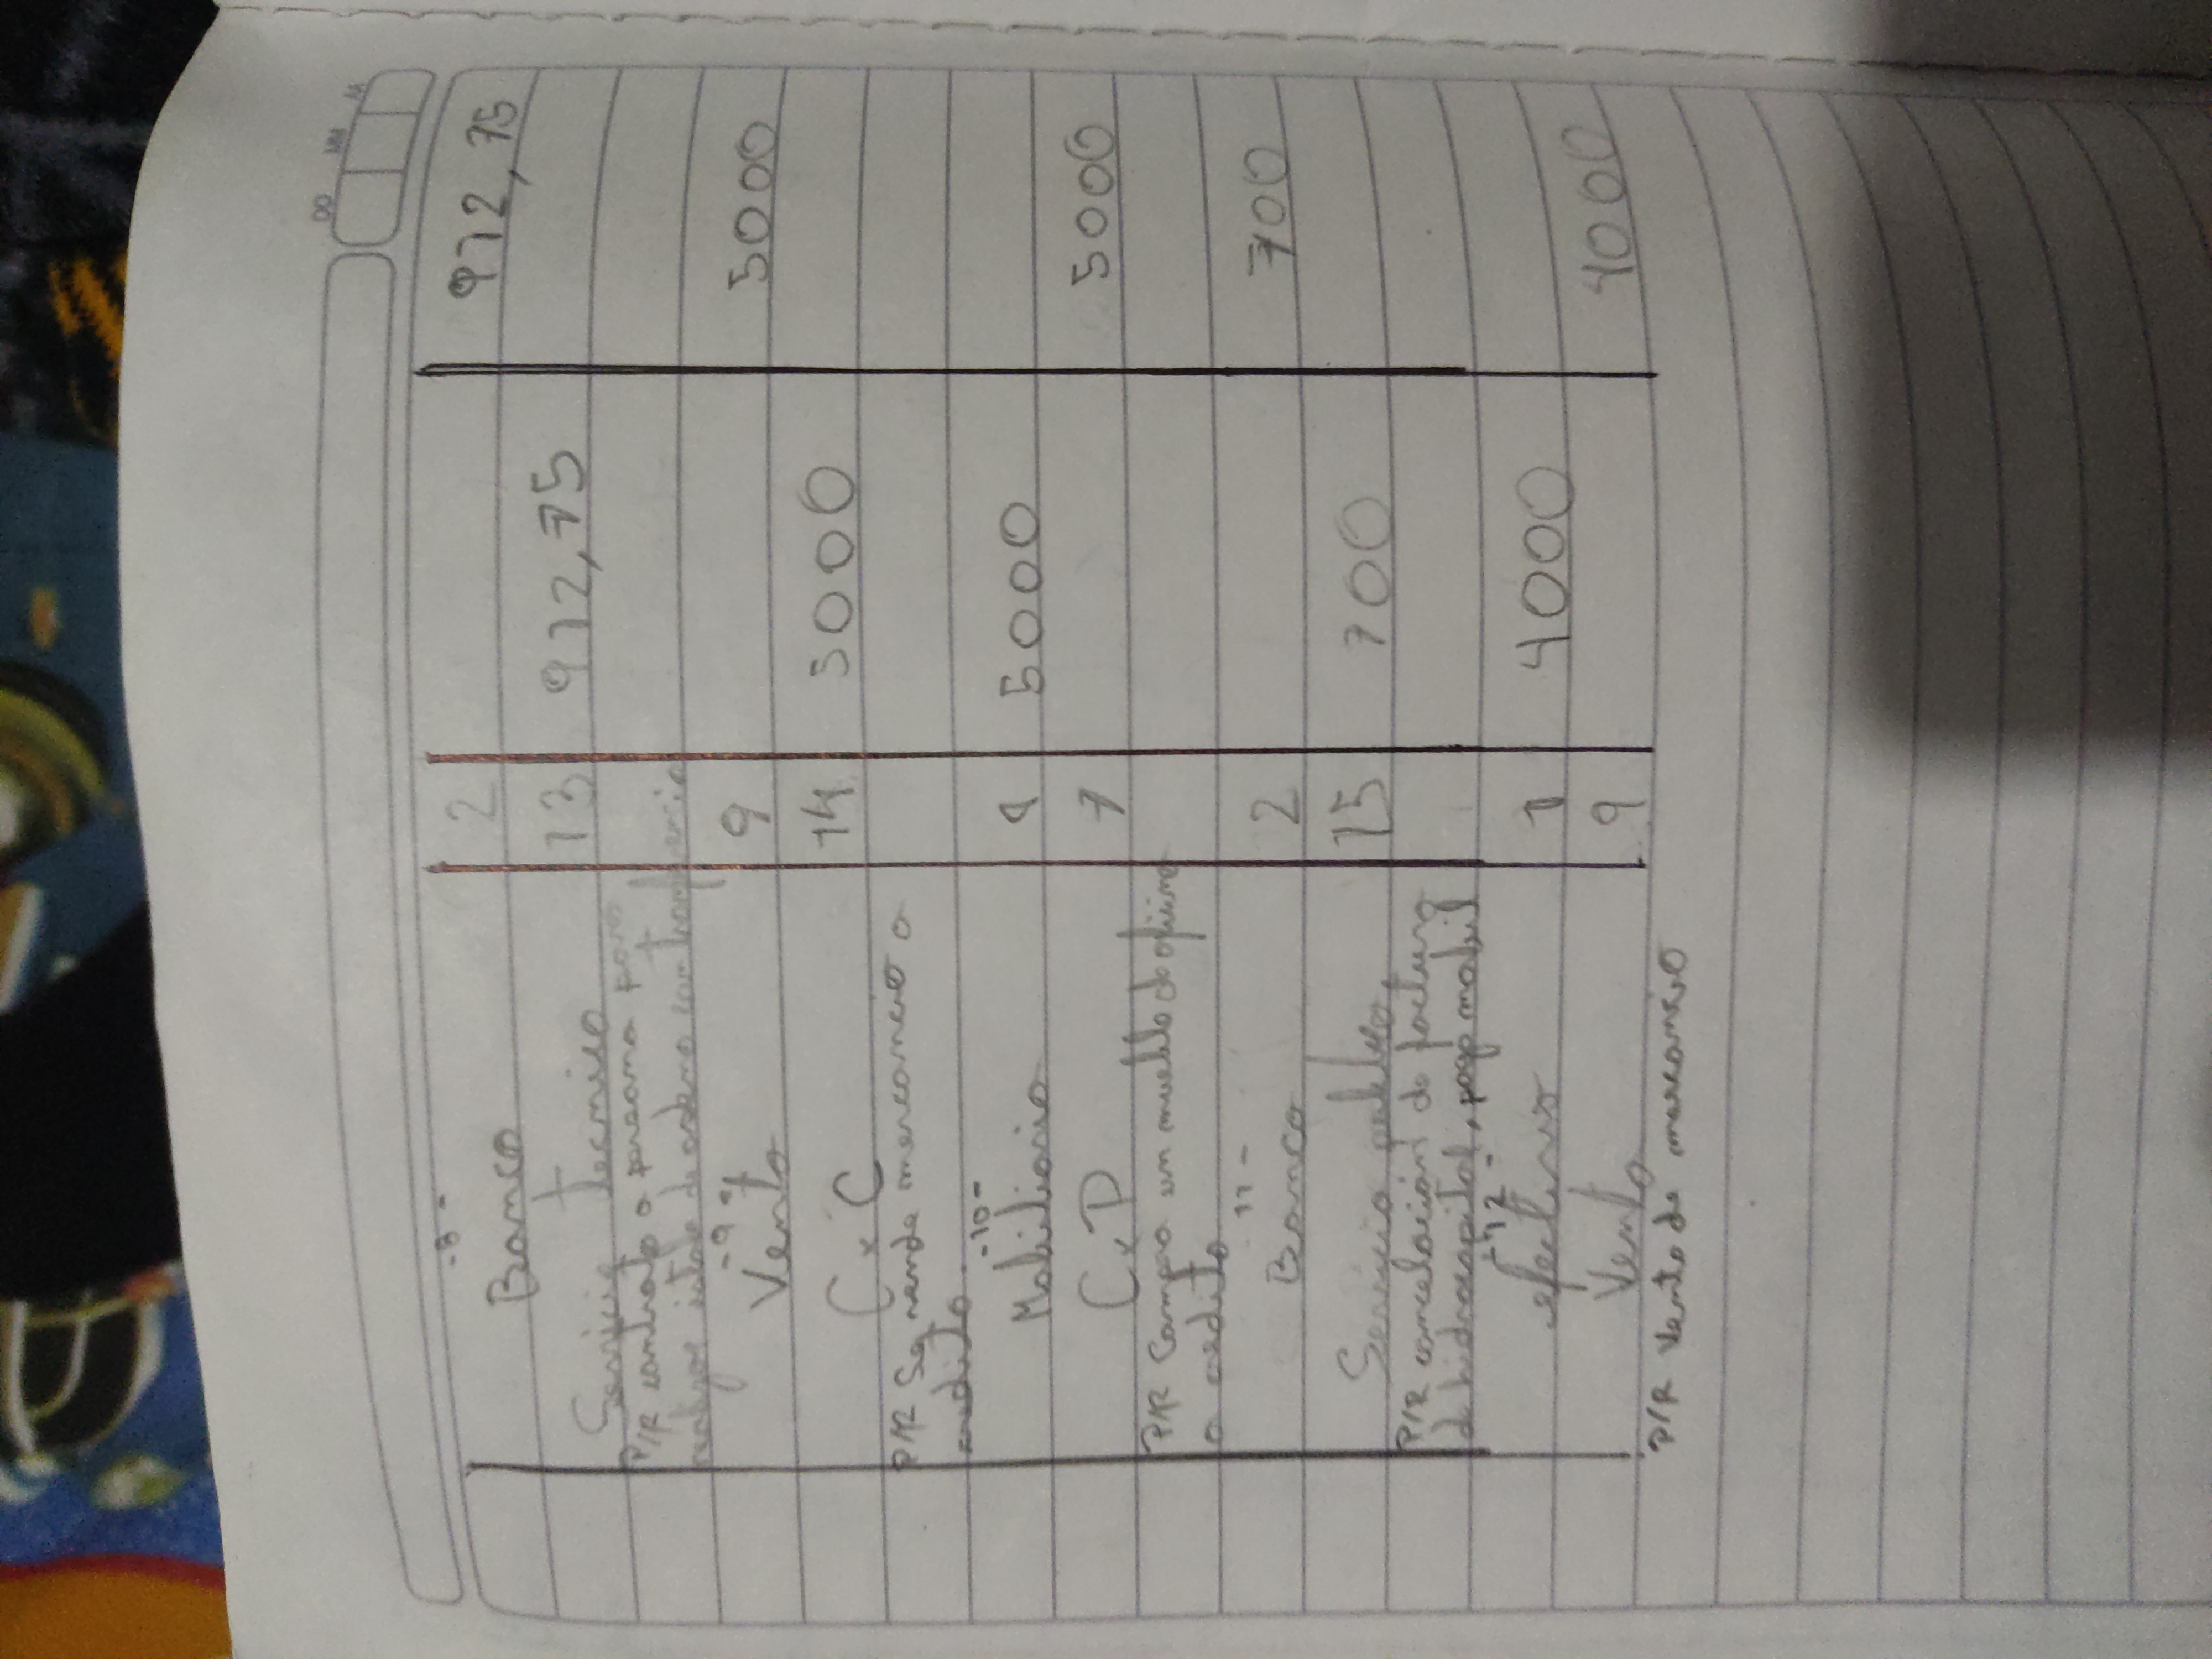 DD MM AA
-8-
Banco 2 912,75
Servicio tecnico 13 912,75
P/R contrato a persona para
realizar de con transferencia
-9-
Venta 9 5000
C x C 14 5000
P/R Se vende mercancia a
credito.
-10-
Mobiliario 8 5000
C x P 7 5000
P/R Compra un mueble de oficina
a credito
11-
Banco 2 700
Servicio publico. 15 700
P/R cancelación de factura
de hidrocapital, pago mobil
-12-
efectivo 1 4000
Venta 9 4000
P/R Venta de mercancia